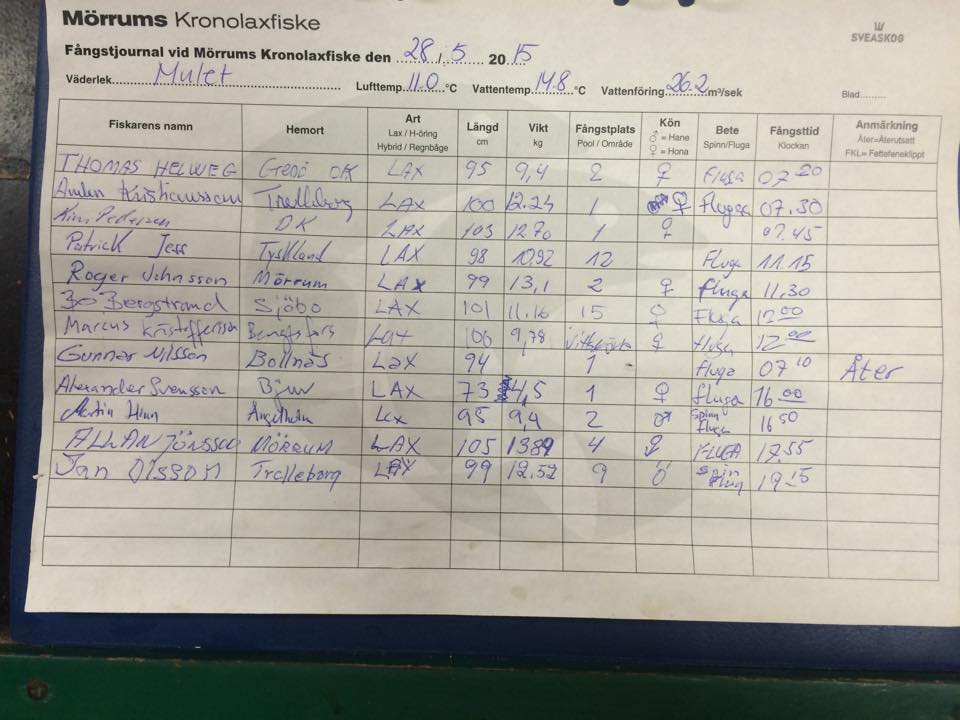 Mörrums Kronolaxfiske
SVEASKOG
Fångstjournal vid Mörrums Kronolaxfiske den 28/5 2015
Väderlek Mulet Lufttemp. 11.0 °C Vattentemp. 14.8 °C Vattenföring 26.2 m³/sek Blad
Fiskarens namn Hemort Art Lax / H-öring Hybrid / Regnbåge Längd cm Vikt kg Fångstplats Pool / Område Kön ♂ = Hane ♀ = Hona Bete Spinn/Fluga Fångsttid Klockan Anmärkning Åter=Återutsatt FKL= Fettefeneklippt
THOMAS HELWEG DK LAX 95 9,4 2 ♀ Fluga 07 20
Kristiansson Trelleborg LAX 100 12.24 1 ♀ fluga 07.30
Kim Pedersen DK LAX 103 1270 1 ♀ 07.45
Patrick Jess Tyskland LAX 98 10.92 12 Fluga 11.15
Roger Johnsson Mörrum LAX 99 13,1 2 ♀ fluga 11,30
Bo Bergstrand Sjöbo LAX 101 11.16 15 ♀ Fluga 12 00
Marcus Kristoffersson Bengtsfors Lax 106 9,78 ♀ fluga 12 00
Gunnar Nilsson Bollnäs Lax 94 1 - fluga 07 10 Åter
Alexander Svensson Bjuv LAX 73 4,5 1 ♀ fluga 16 00
Martin Ängelholm Lax 95 9,4 2 ♂ Spinn fluga 16 50
ALLAN Jönsson MÖRRUM LAX 105 4 FLUGA 17.55
Jan Olsson Trelleborg LAX 99 12.52 9 Spin flug 19.15